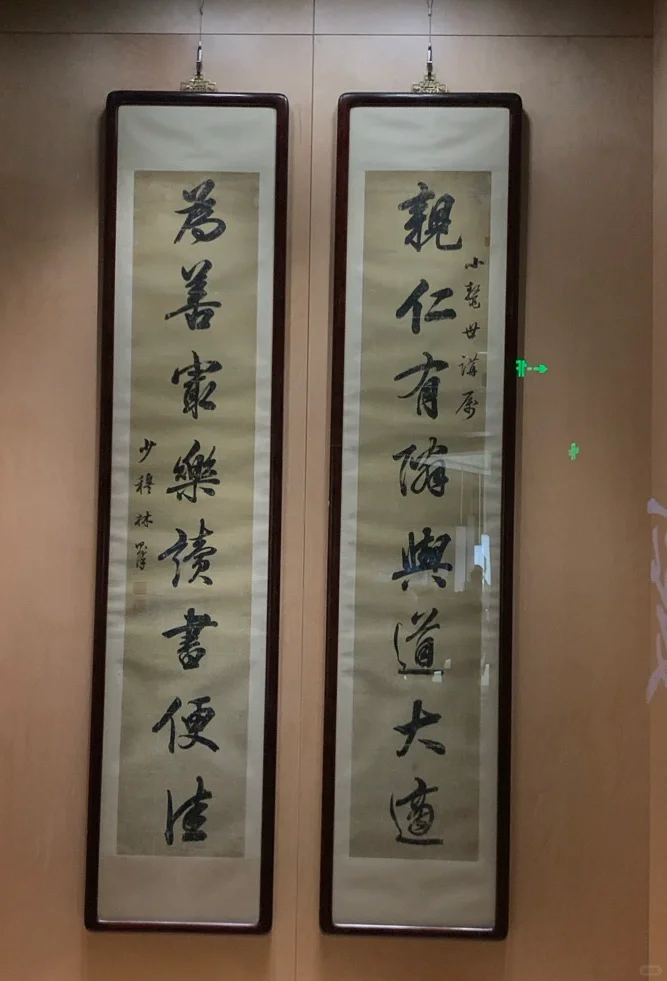 親仁有隣與道大適
小鼇世講属
為善最樂讀書便佳
少穆林則徐